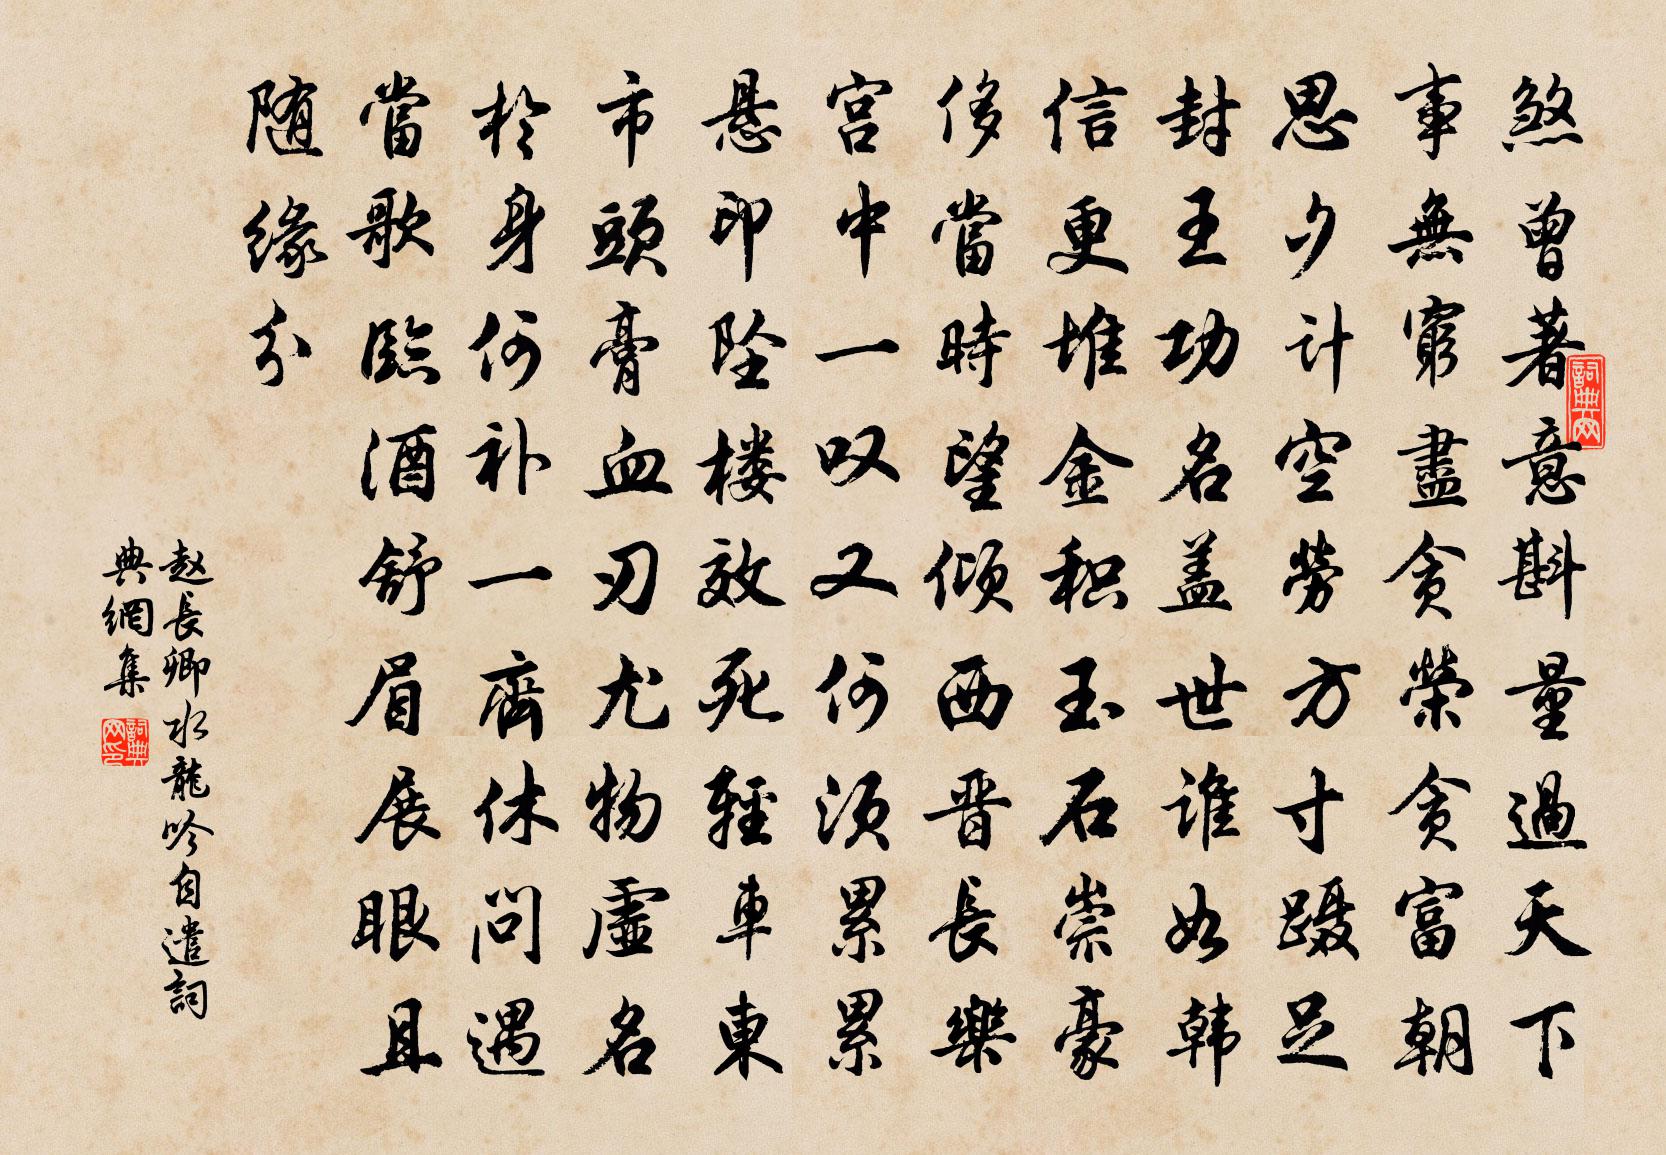 煞曾著意斟量過天下
事無窮盡貪榮貪富朝
思夕计空勞方寸蹑足
封王功名盖世谁如韩
信更堆金积玉石崇豪
侈當時望倾西晋長樂
宫中一叹又何须累累
悬印坠楼效死輕車東
市頭膏血刃尤物虛名
於身何补一齊休问遇
當歌臨酒舒眉展眼且
随缘分
赵長卿水龍吟自遣詞
典網集
詞典网
詞典网印